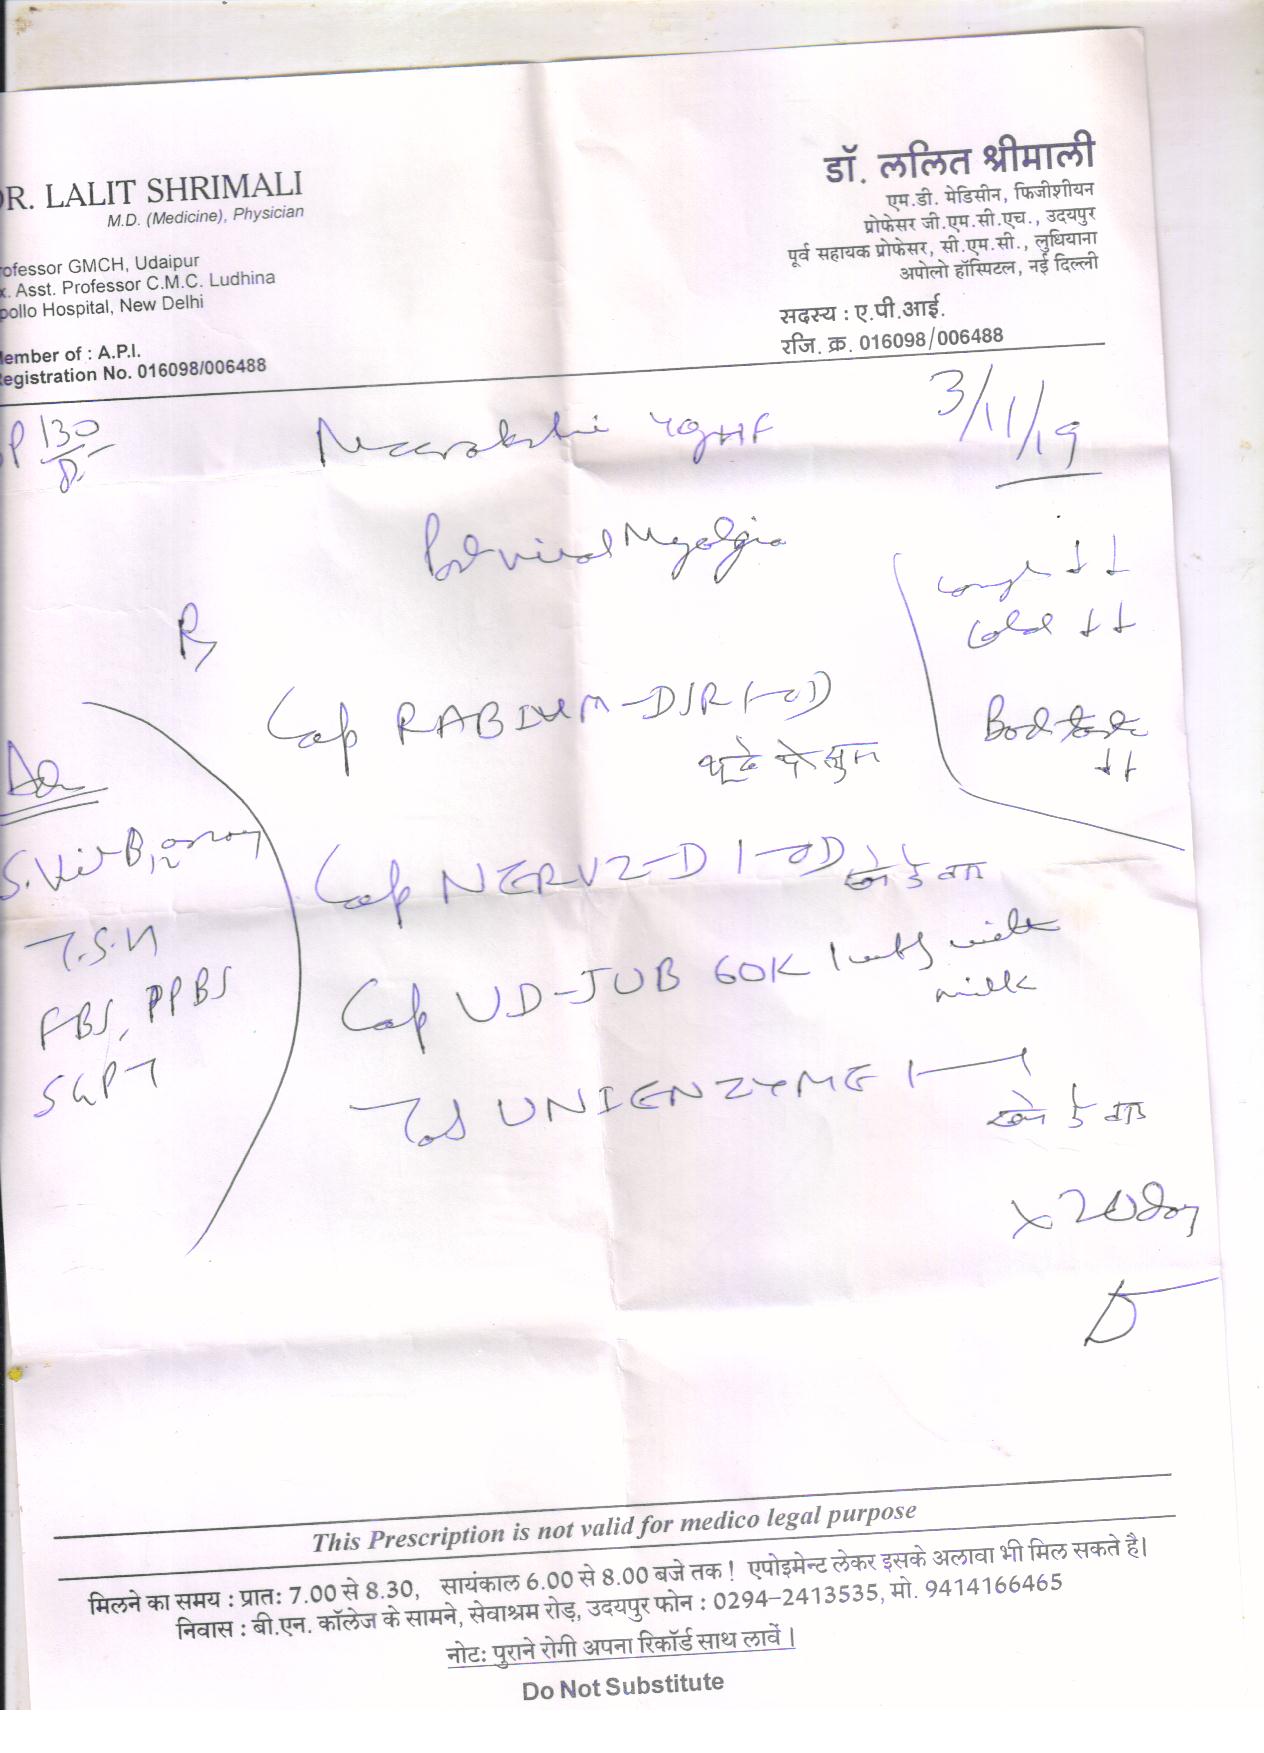 R. LALIT SHRIMALI
M.D. (Medicine), Physician
ofessor GMCH, Udaipur
x. Asst. Professor C.M.C. Ludhina
pollo Hospital, New Delhi
ember of : A.P.I.
egistration No. 016098/006488
डॉ. ललित श्रीमाली
एम.डी. मेडिसीन, फिजीशीयन
प्रोफेसर जी.एम.सी.एच., उदयपुर
पूर्व सहायक प्रोफेसर, सी.एम.सी., लुधियाना
अपोलो हॉस्पिटल, नई दिल्ली
सदस्य : ए.पी.आई.
रजि. क्र. 016098/006488
3/11/19
P 130
Meenakshi
Post viral Myalgia
Cough ↓↓
Cold ↓↓
↓↓
Rx
Cap RABIUM-DSR 1-OD
Adv
S. Vit B12 assay
T.S.H
FBS, PPBS
SGPT
Cap NERVZ-D 1-OD खाने के बाद
Cap UD-JUB 60K 1 with
milk
Tab UNIENZYME 1—1
खाने के बाद
x 20 day
This Prescription is not valid for medico legal purpose
मिलने का समय : प्रातः 7.00 से 8.30, सायंकाल 6.00 से 8.00 बजे तक ! एपोइमेन्ट लेकर इसके अलावा भी मिल सकते है।
निवास : बी.एन. कॉलेज के सामने, सेवाश्रम रोड़, उदयपुर फोन : 0294-2413535, मो. 9414166465
नोटः पुराने रोगी अपना रिकॉर्ड साथ लावें ।
Do Not Substitute